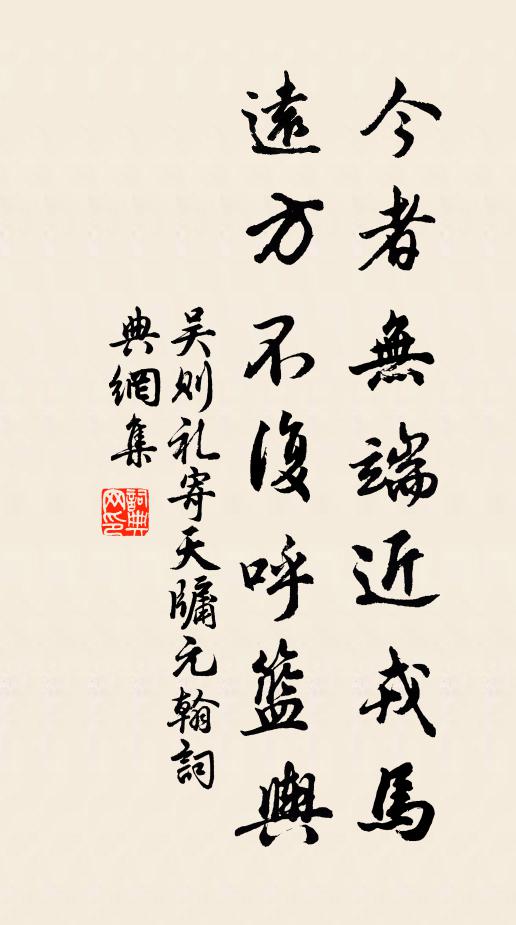 今者無端近戎馬
遠方不復呼籃輿
吳則礼寄天牖元翰詞
典網集
詞典网印